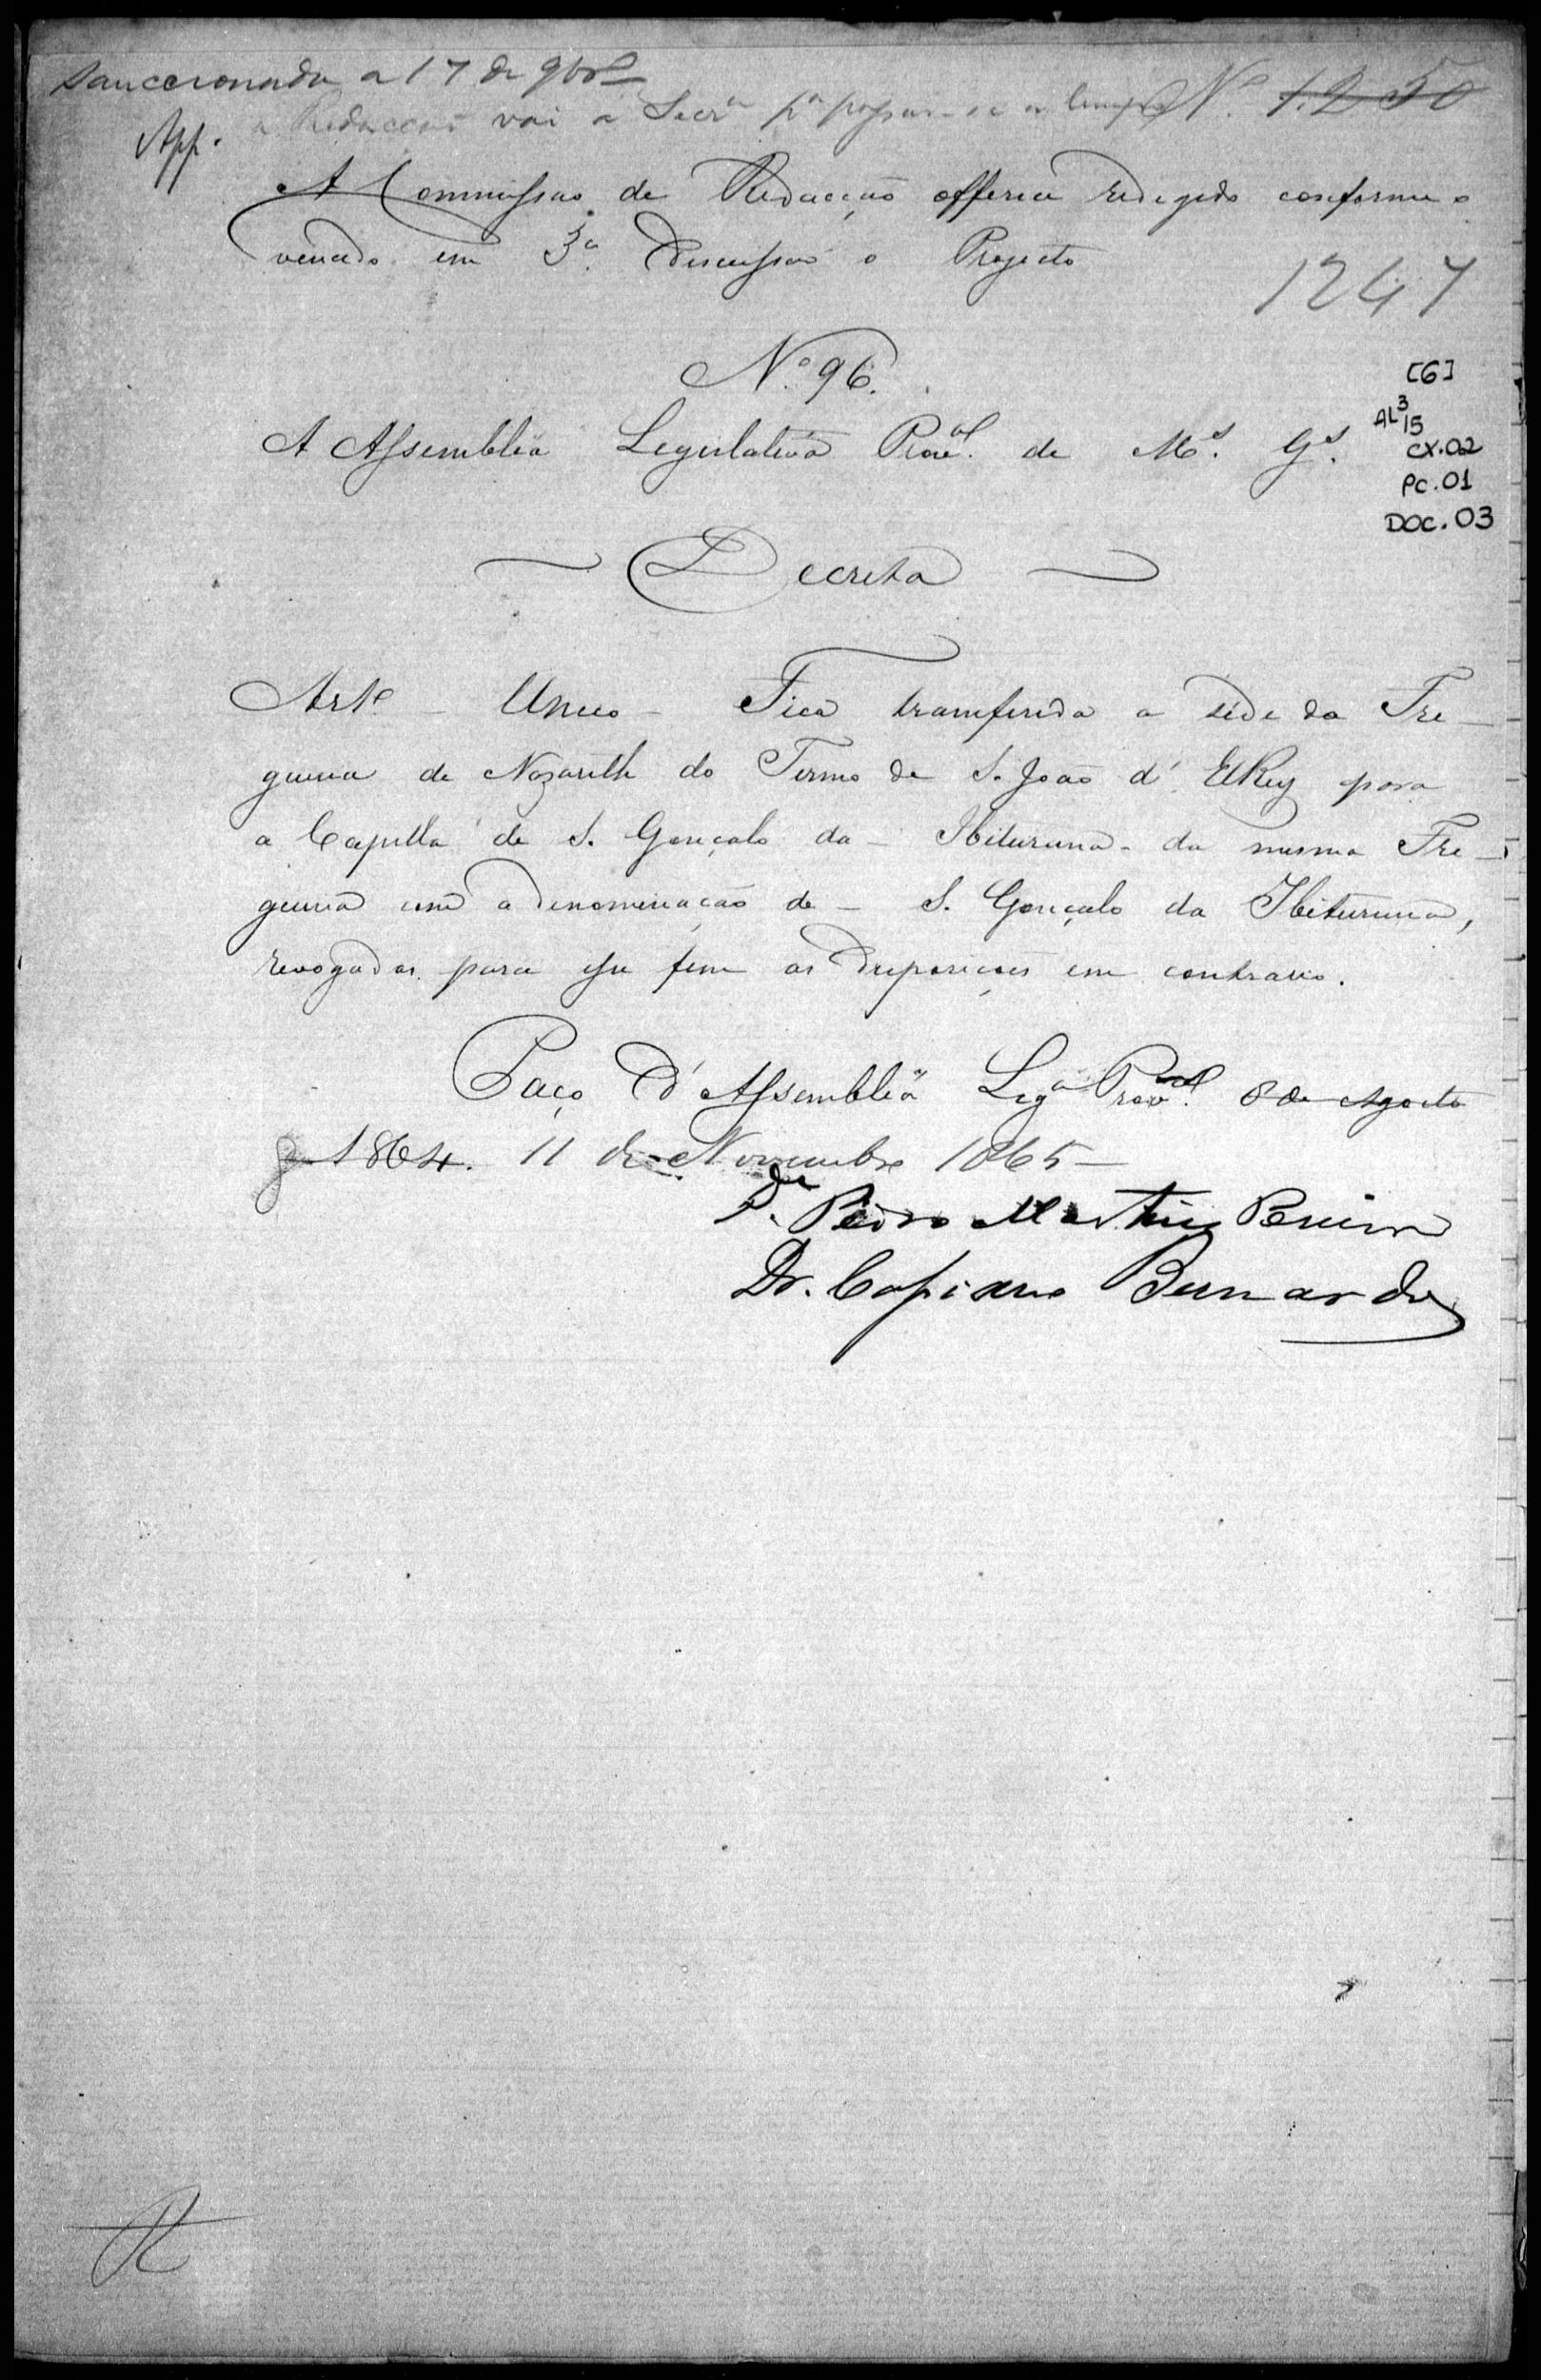 Sanccionada a 17 de 9br.e
App. a Redacção vai a Secr.a p.a passar-se a limpo Nº 1.250
A Commissão de Redacção offerece redigido conforme o
vencido em 3ª Discussão o Projecto
1247
Nº 96.
[6]
AL³15
CX.02
PC.01
DOC.03
A Assembléa Legislativa Prov.al de M.s G.s
Decreta
Art.e – Unico – Fica transferida a séde da Fre-
guezia de Nazareth do Termo de S. João d'ElRey para
a Capella de S. Gonçalo da – Ibituruna – da mesma Fre-
guezia com a denominação de – S. Gonçalo da Ibituruna,
revogadas para esse fim as disposições em contrario.
Paço d'Assembléa Leg.a Prov.al 8 de Agosto
de 1864. 11 de Novembro de 1865 –
P. Pedro Martins Pereira
Dr. Cassiano Bernardo